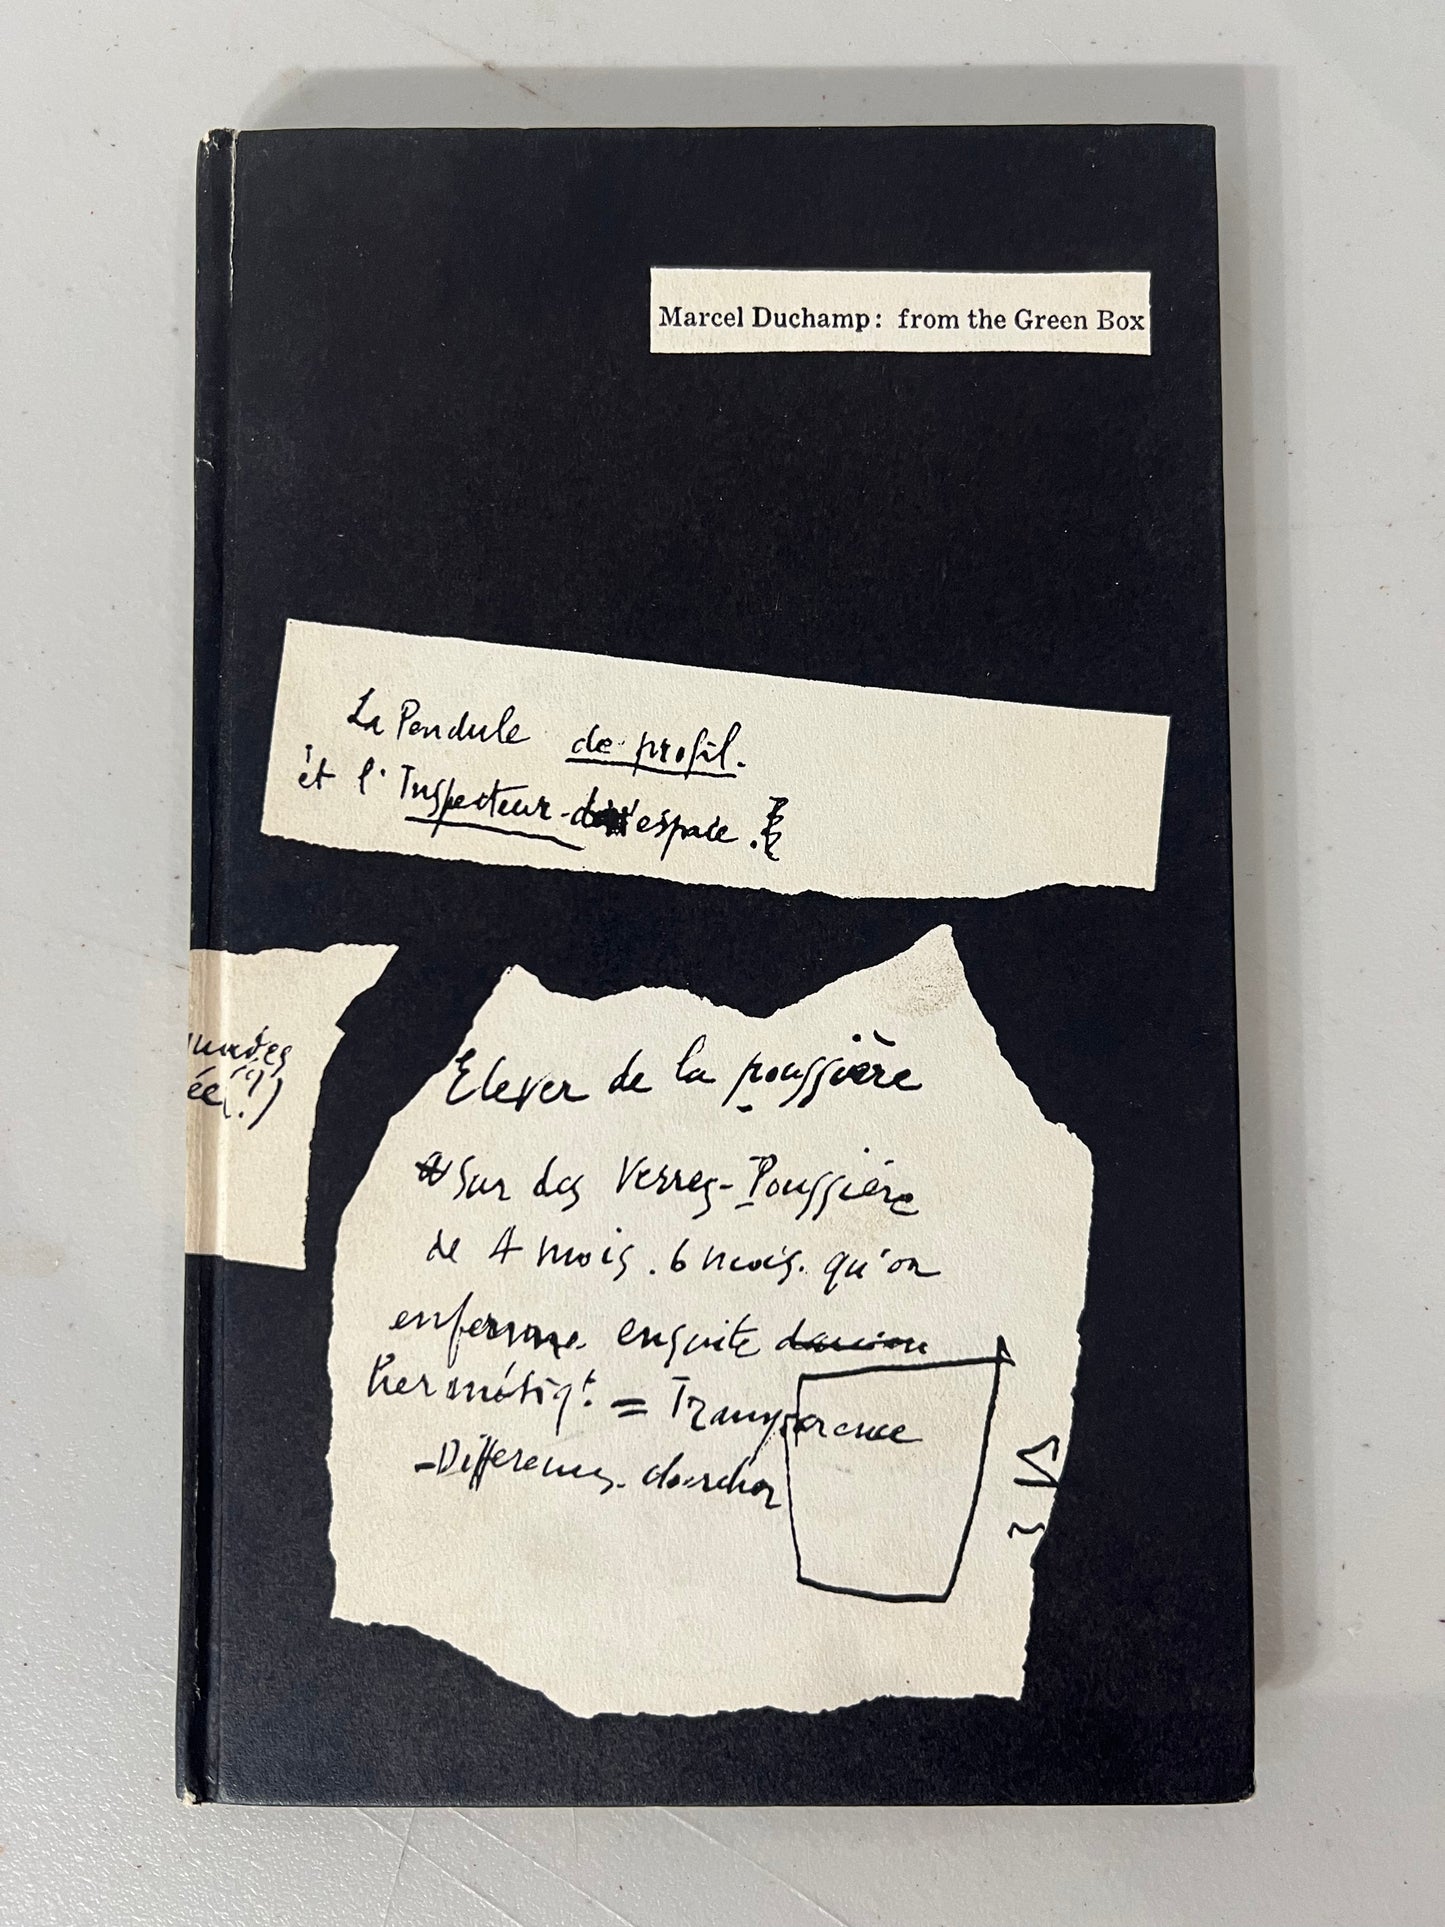 Marcel Duchamp: from the Green Box
La Pendule de profil.
et l'Inspecteur d'espace.
ée(?)
Elever de la poussière
Sur des Verres-Poussière
de 4 mois. 6 mois. qu'on
enferme ensuite
hermétiqt = Transparence
-Differences. chercher